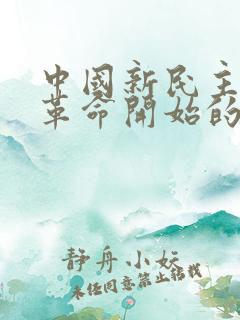 中國新民主
革命開始的
靜舟小妖
未经同意禁止转载